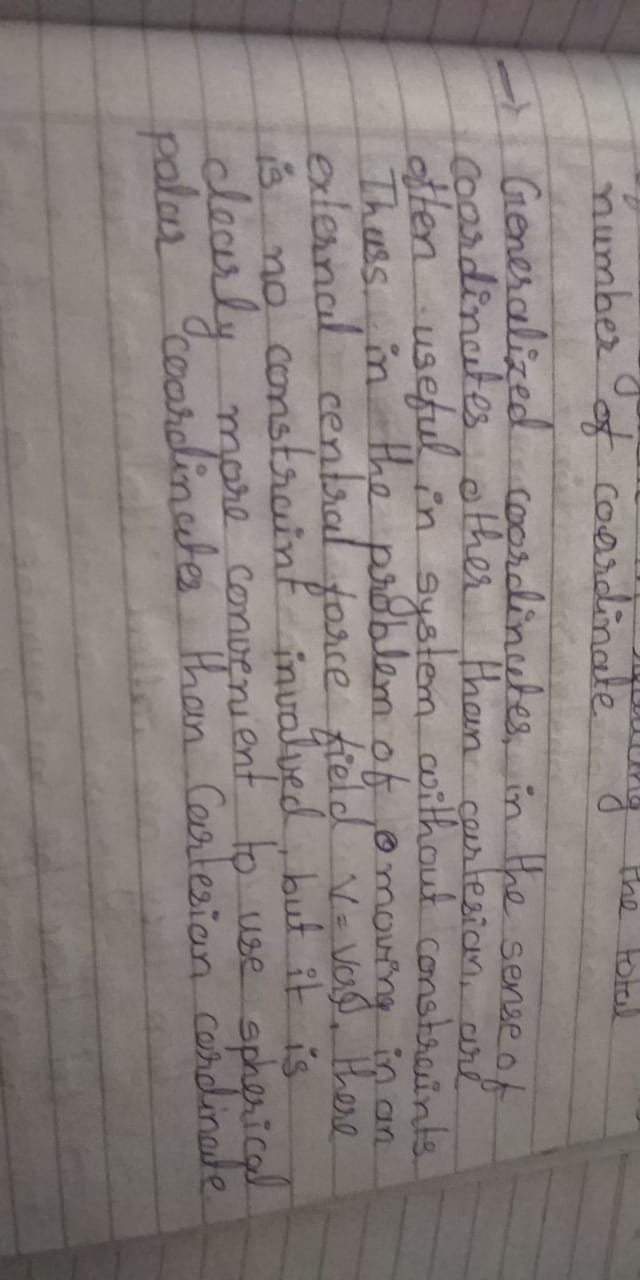 the total
number of coordinate
→ Generalized coordinates, in the sense of
coordinates other than cartesian, are
often useful in system without constraints
Thus, in the problem of moving in an
external central force field V = V(r), there
is no constraint involved, but it is
clearly more convenient to use spherical
polar coordinates than Cartesian cordinate